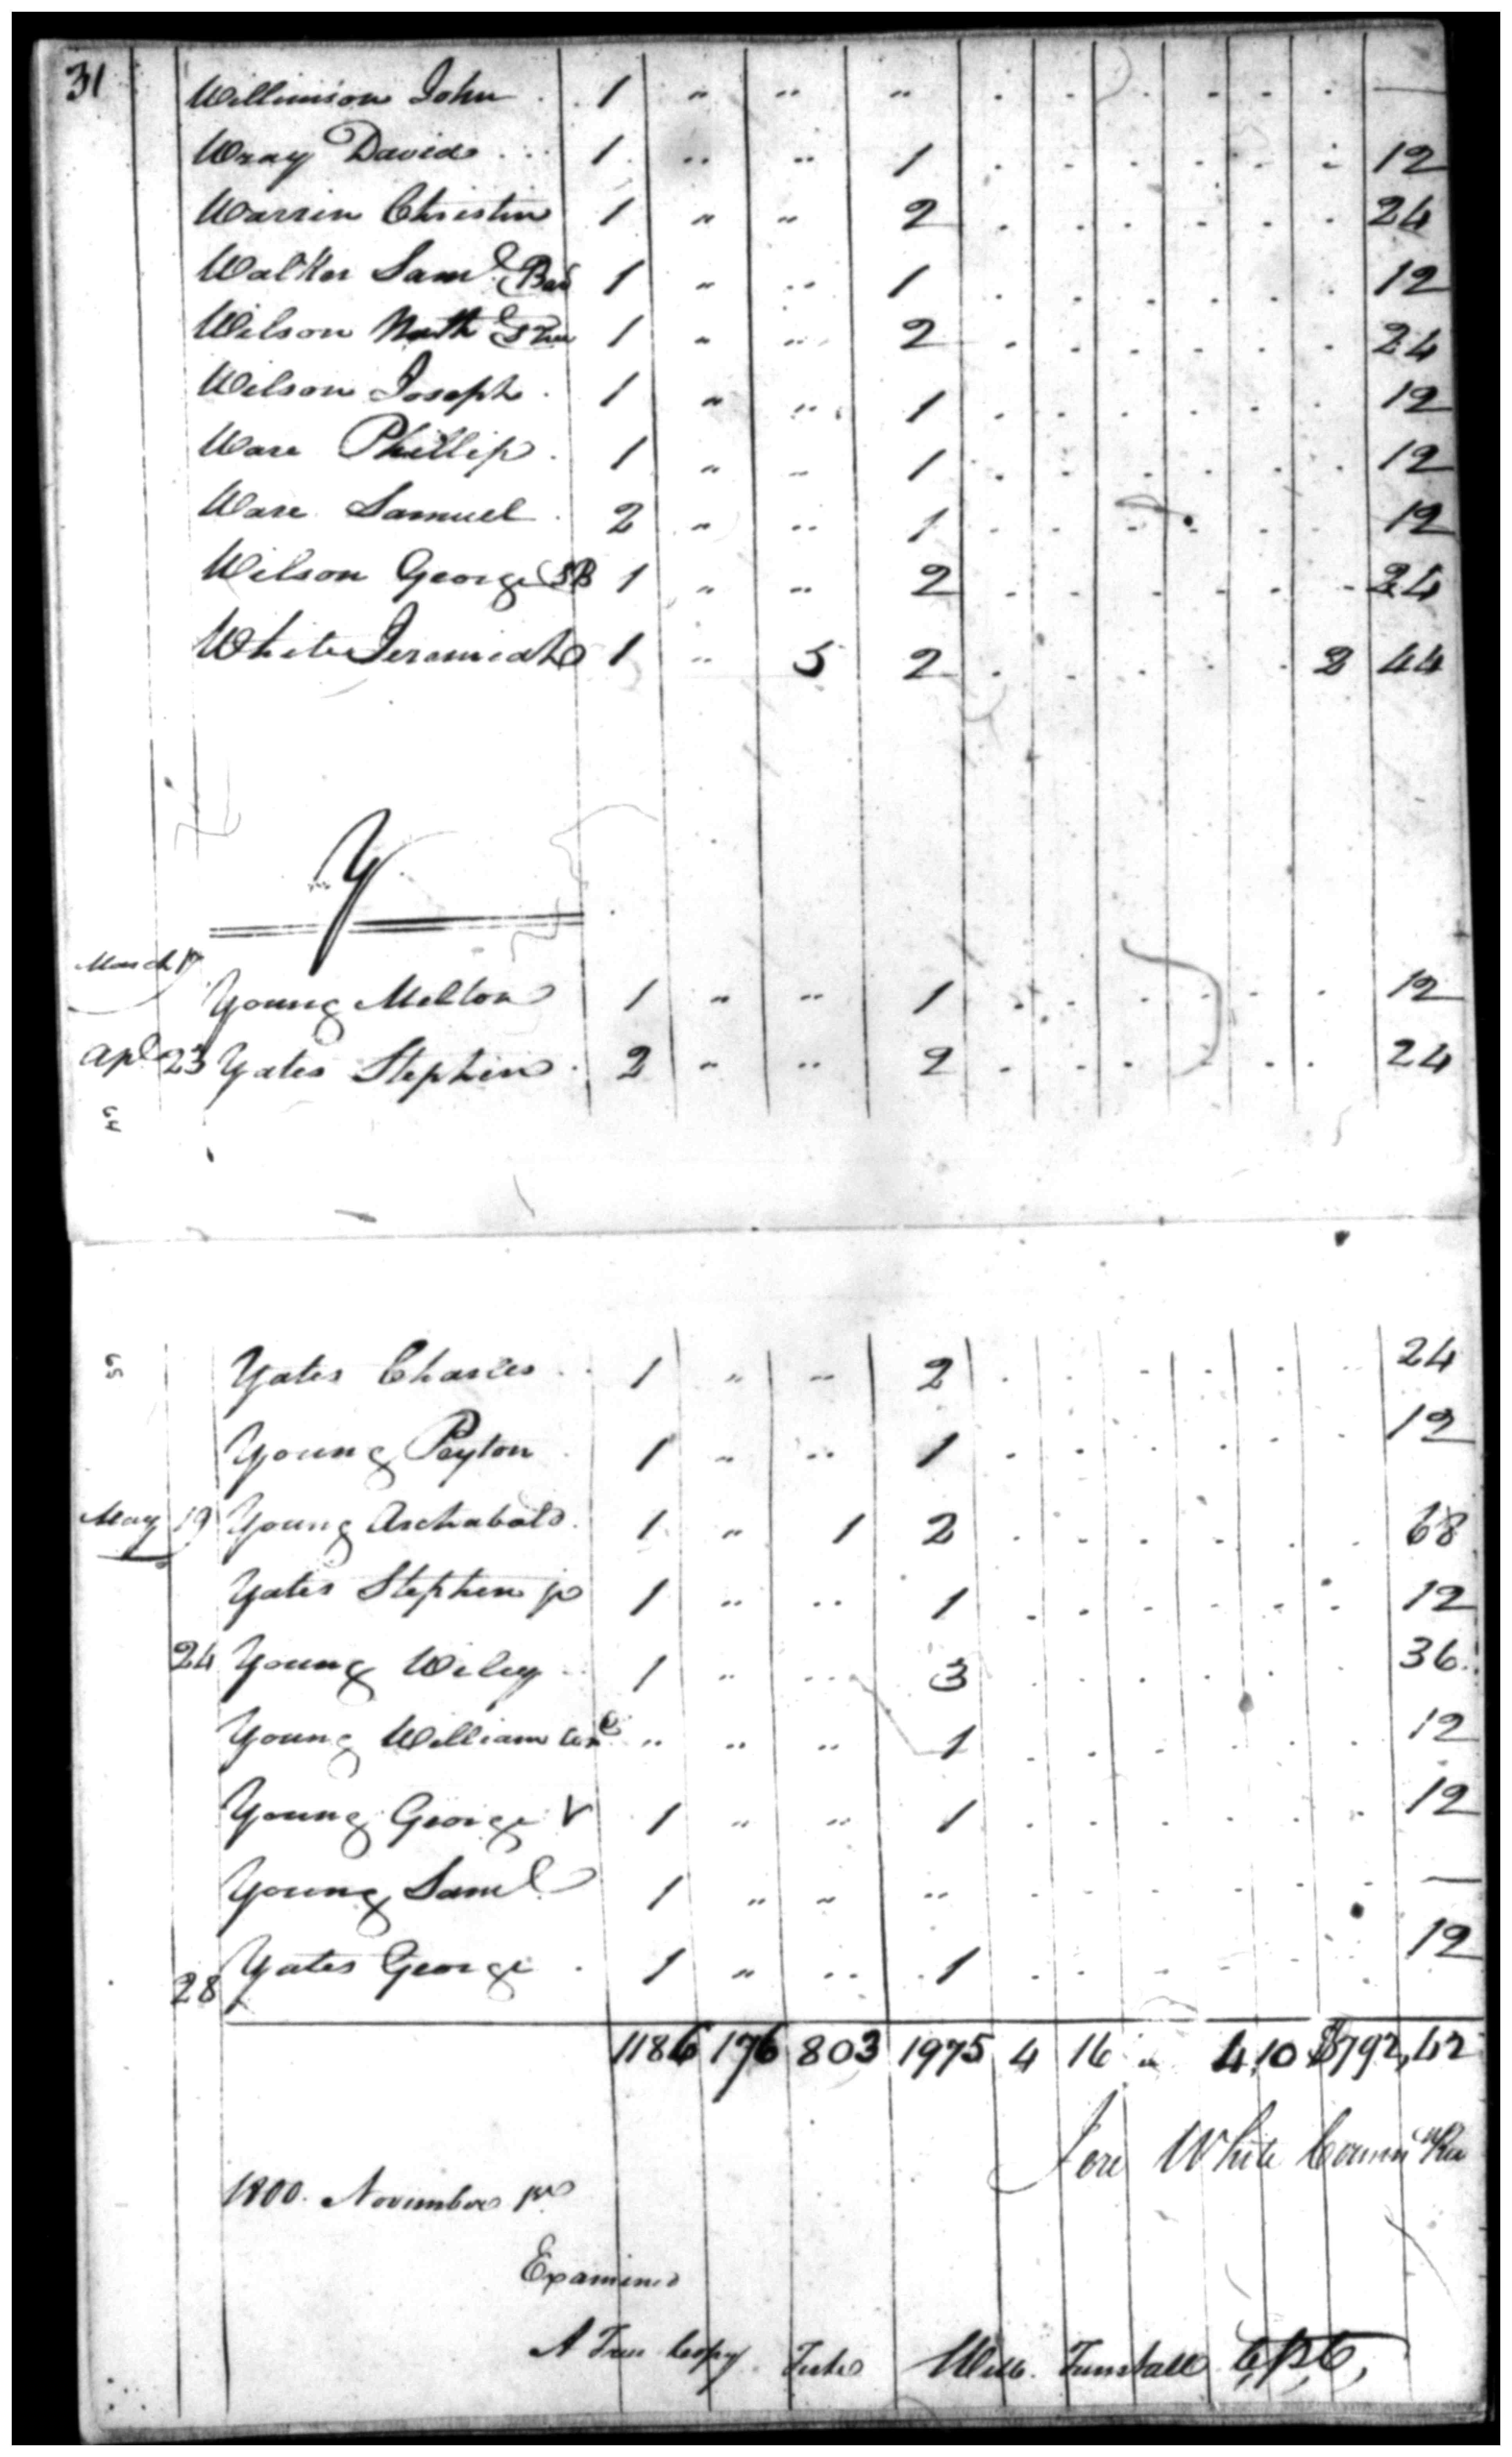 31 Willimson John . 1 " " " . . . . . . —
Wray David . . . 1 " " 1 . . . . . . 12
Warrin Christin 1 " " 2 . . . . . . 24
Walker Saml 1 " " 1 . . . . . . 12
Wilson Nath 1 " " 2 . . . . . . 24
Wilson Joseph . 1 " " 1 . . . . . . 12
Ware Phillip . 1 " " 1 . . . . . . 12
Ware Samuel . 2 " " 1 . . . . . . 12
Wilson George SB 1 " " 2 . . . . . . 24
White Jeremiah 1 " 5 2 . . . . . 2 44
Y
March 17
Young Melton 1 " " 1 . . . . . . 12
Apl 23 Yates Stephen . 2 " " 2 . . . . . . 24
Yates Charles . . 1 " " 2 . . . . . . 24
Young Peyton . 1 " " 1 . . . . . . 12
May 19 Young Archabald . 1 " 1 2 . . . . . . 68
Yates Stephen jr 1 " " 1 . . . . . . 12
24 Young Wiley . . 1 " " 3 . . . . . . 36
Young William " " " 1 . . . . . . 12
Young George V 1 " " 1 . . . . . . 12
Young Saml 1 " " " . . . . . . —
28 Yates George . 1 " " 1 . . . . . . 12
1186 176 803 1975 4 16 " 4,10 $792,42
Jere White Commr Rev
1800. November
Examined
A True Copy Teste Will. Tunstall CPC,